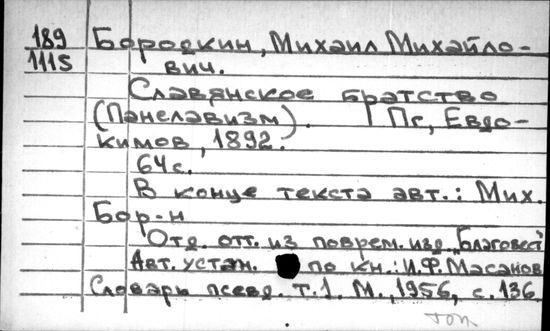 189 Бородкин, Михаил Михайло-
1115 вич.
Славянское братство
(Панславизм). Пг, Евдо-
кимов, 1892.
64 с.
В конце текста авт.: Мих.
Бор-н
Отд. отт. из поврем. изд. "Благовест"
Авт. устан. по кн.: И.Ф. Масанов
Словарь псевд. т.1. М., 1956, с. 136.